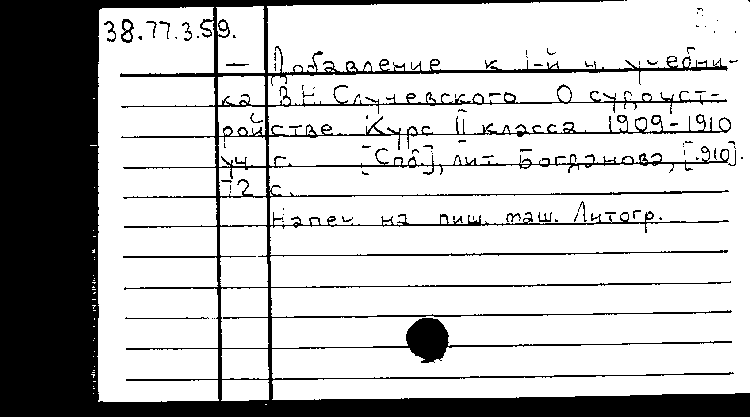 38.77.3.59.
— Добавление к 1-й ч. учебни-
ка В.Н. Случевского О судоуст-
ройстве. Курс II класса. 1909-1910
уч. г. [Спб.], лит. Богданова, [1910].
72 с.
Напеч. на пиш. маш. Литогр.